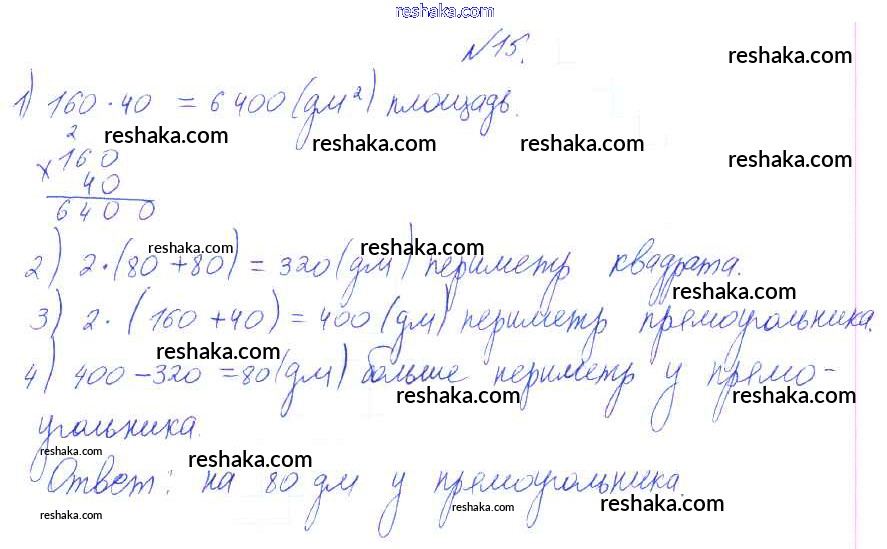 reshaka.com
№15.
reshaka.com
1) 160 · 40 = 6400 (дм²) площадь.
reshaka.com reshaka.com reshaka.com
2
× 160
reshaka.com
40
6400
2) 2·(80+80) = 320 (дм) периметр квадрата.
reshaka.com reshaka.com
reshaka.com
3) 2·(160+40) = 400 (дм) периметр прямоугольника.
reshaka.com
4) 400-320 = 80 (дм) больше периметр у прямо-
reshaka.com reshaka.com reshaka.com
угольника.
reshaka.com reshaka.com
Ответ: на 80 дм у прямоугольника.
reshaka.com reshaka.com reshaka.com